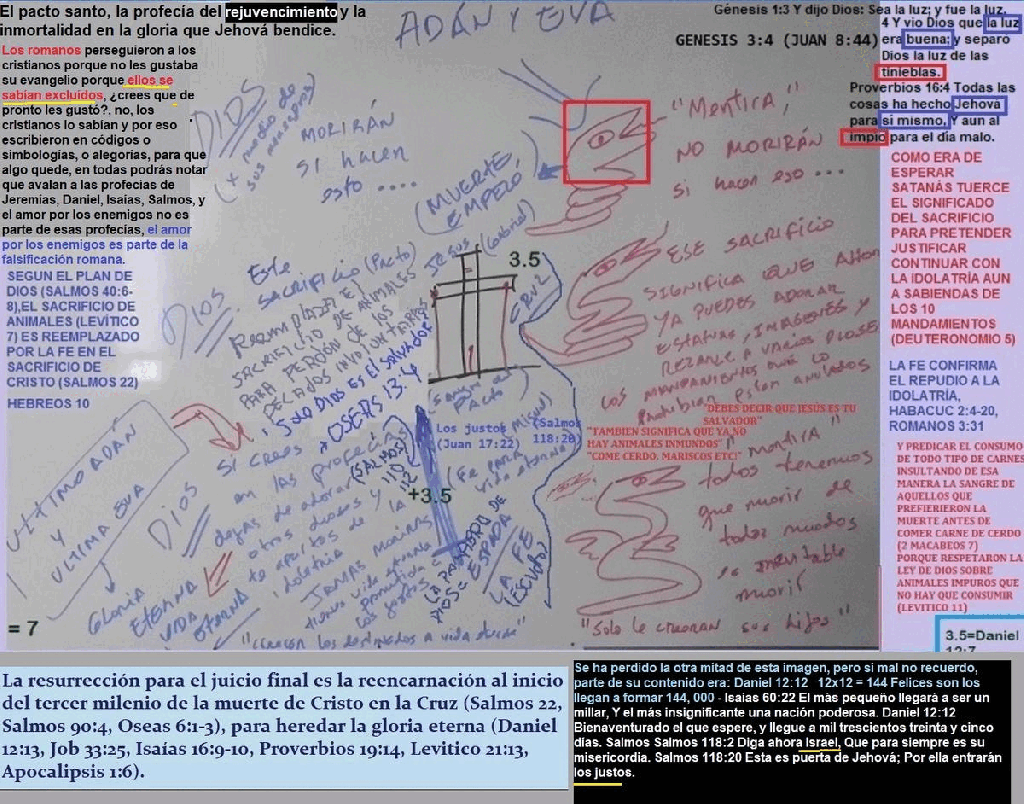 El pacto santo, la profecía del rejuvencimiento y la
inmortalidad en la gloria que Jehová bendice.
Los romanos perseguieron a los
cristianos porque no les gustaba
su evangelio porque ellos se
sabían excluidos, ¿crees que de
pronto les gustó?. no, los
cristianos lo sabían y por eso
escribieron en códigos o
simbologías, o alegorías, para que
algo quede, en todas podrás notar
que avalan a las profecías de
Jeremías, Daniel, Isaías, Salmos, y
el amor por los enemigos no es
parte de esas profecías, el amor
por los enemigos es parte de la
falsificación romana.
SEGUN EL PLAN DE
DIOS (SALMOS 40:6-
8),EL SACRIFICIO DE
ANIMALES (LEVÍTICO
7) ES REEMPLAZADO
POR LA FE EN EL
SACRIFICIO DE
CRISTO (SALMOS 22)
HEBREOS 10
ULTIMO ADÁN
Y
ULTIMA EVA
GLORIA
ETERNA
VIDA
ETERNA
= 7
ADÁN Y EVA
DIOS
(x medio de
sus
MORIRÁN
SI hacen
esto ....
(MUERTE,
EMPERO)
DIOS
Este
SACRIFICIO (Pacto)
REEMPLAZA EL
SACRIFICIO DE ANIMALES
PARA PERDÓN DE LOS
PECADOS INVOLUNTARIOS
SOLO DIOS ES EL SALVADOR
OSEAS 13:4
JESUS
3.5
Los justos
(Juan 17:22)
(Salmos
118:20)
+3.5
DIOS
SI crees
en las profecías
dejas de adorar
otros dioses y
te apartas
idolatría de la
JAMAS MORIRÁS
vida eterna
LA PALABRA DE
DIOS ES ESPADA
LA FE
(ESCUDO)
GENESIS 3:4 (JUAN 8:44)
"Mentira,"
NO MORIRÁN
si hacen eso ...
ESE SACRIFICIO
SIGNIFICA QUE
YA PUEDES ADORAR
ESTATUAS, IMAGENES Y
REZARLE A VARIOS DIOSES
LOS MANDAMIENTOS QUE LO
Prohibían están anulados
"DEBES DECIR QUE JESÚS ES TU
SALVADOR"
"TAMBIEN SIGNIFICA QUE YA NO
HAY ANIMALES INMUNDOS"
"COME CERDO. MARISCOS ETC!"
"mentira"
todos tenemos
que morir de
todos modos
es inevitable
morir
"Solo le creeran sus hijos"
Génesis 1:3 Y dijo Dios: Sea la luz; y fue la luz.
4 Y vio Dios que la luz
era buena; y separó
Dios la luz de las
tinieblas.
Proverbios 16:4 Todas las
cosas ha hecho Jehová
para sí mismo, Y aun al
impío para el día malo.
COMO ERA DE
ESPERAR
SATANÁS TUERCE
EL SIGNIFICADO
DEL SACRIFICIO
PARA PRETENDER
JUSTIFICAR
CONTINUAR CON
LA IDOLATRÍA AUN
A SABIENDAS DE
LOS 10
MANDAMIENTOS
(DEUTERONOMIO 5)
LA FE CONFIRMA
EL REPUDIO A LA
IDOLATRÍA,
HABACUC 2:4-20,
ROMANOS 3:31
Y PREDICAR EL CONSUMO
DE TODO TIPO DE CARNES
INSULTANDO DE ESA
MANERA LA SANGRE DE
AQUELLOS QUE
PREFIERIERON LA
MUERTE ANTES DE
COMER CARNE DE CERDO
(2 MACABEOS 7)
PORQUE RESPETARON LA
LEY DE DIOS SOBRE
ANIMALES IMPUROS QUE
NO HAY QUE CONSUMIR
(LEVITICO 11)
3.5=Daniel
12:7
La resurrección para el juicio final es la reencarnación al inicio
del tercer milenio de la muerte de Cristo en la Cruz (Salmos 22,
Salmos 90:4, Oseas 6:1-3), para heredar la gloria eterna (Daniel
12:13, Job 33:25, Isaías 16:9-10, Proverbios 19:14, Levitico 21:13,
Apocalipsis 1:6).
Se ha perdido la otra mitad de esta imagen, pero si mal no recuerdo,
parte de su contenido era: Daniel 12:12 12x12 = 144 Felices son los
llegan a formar 144, 000 - Isaías 60:22 El más pequeño llegará a ser un
millar, Y el más insignificante una nación poderosa. Daniel 12:12
Bienaventurado el que espere, y llegue a mil trescientos treinta y cinco
días. Salmos Salmos 118:2 Diga ahora Israel, Que para siempre es su
misericordia. Salmos 118:20 Esta es puerta de Jehová; Por ella entrarán
los justos.